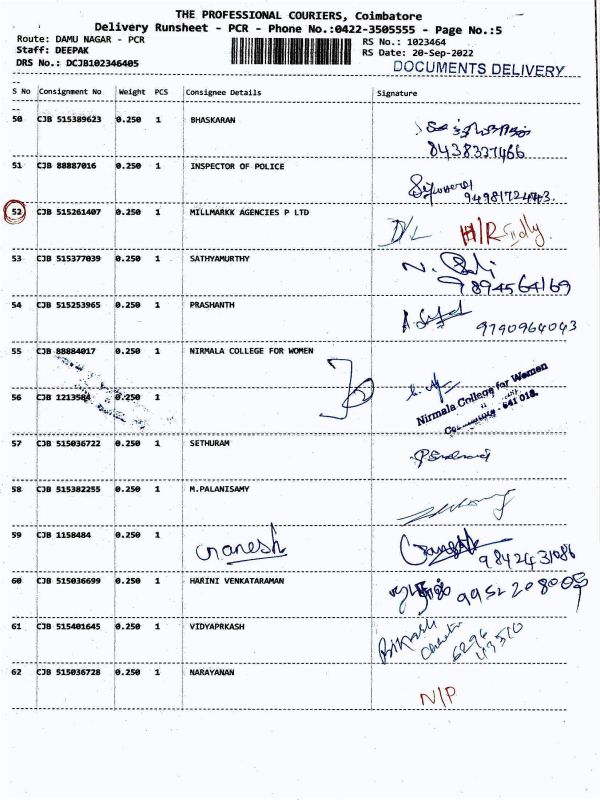 THE PROFESSIONAL COURIERS, Coimbatore
Delivery Runsheet - PCR - Phone No.:0422-3505555 - Page No.:5
Route: DAMU NAGAR - PCR RS No.: 1023464
Staff: DEEPAK RS Date: 20-Sep-2022
DRS No.: DCJB102346405 DOCUMENTS DELIVERY
S No Consignment No Weight PCS Consignee Details Signature
50 CJB 515389623 0.250 1 BHASKARAN
8438337466
51 CJB 88887016 0.250 1 INSPECTOR OF POLICE
9498172443.
52 CJB 515261407 0.250 1 MILLMARKK AGENCIES P LTD
D/L
53 CJB 515377039 0.250 1 SATHYAMURTHY
9894564169
54 CJB 515253965 0.250 1 PRASHANTH
9790964043
55 CJB 88884017 0.250 1 NIRMALA COLLEGE FOR WOMEN
Nirmala College for Women
641 018.
56 CJB 0.250 1
57 CJB 515036722 0.250 1 SETHURAM
58 CJB 515382255 0.250 1 M.PALANISAMY
59 CJB 1158484 0.250 1 Ganesh
9842431086
60 CJB 515036699 0.250 1 HARINI VENKATARAMAN
61 CJB 515401645 0.250 1 VIDYAPRKASH
62 CJB 515036728 0.250 1 NARAYANAN
N/P